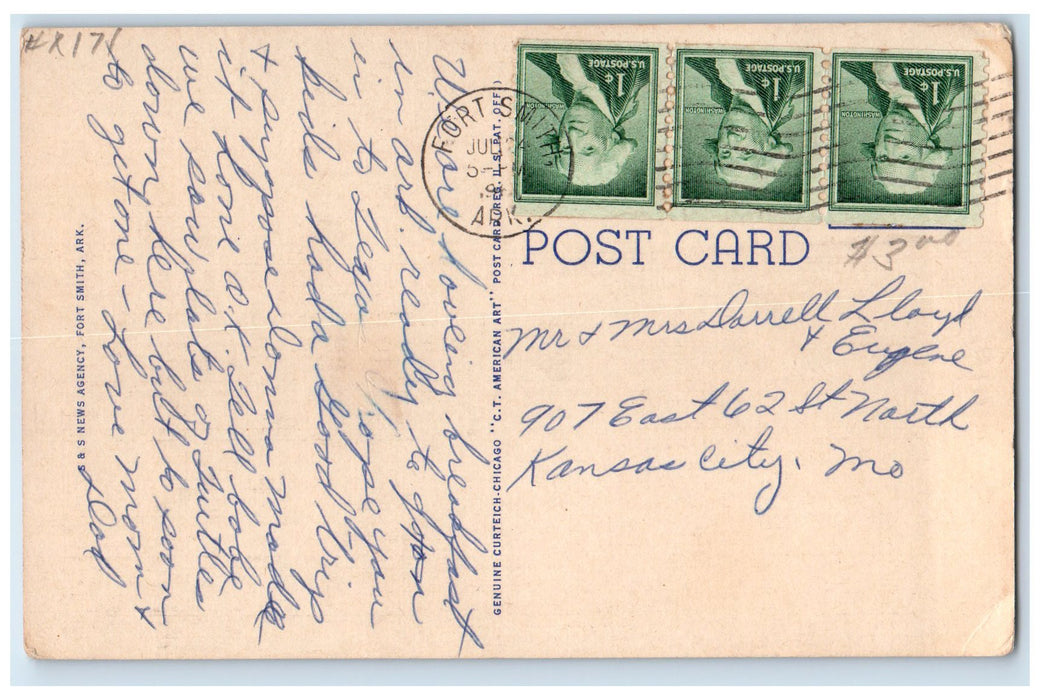 #X171
We are having breakfast
in ark. ready to
in to Legs. Hope you
kids had a good trip
& suppose Donna made
it home ok. Tell bobe
we saw plate of Turtles
down here but to soon
to get one - Love Mom &
Dad
S & S NEWS AGENCY, FORT SMITH, ARK.
GENUINE CURTEICH-CHICAGO "C.T. AMERICAN ART" POST CARD (REG. U.S. PAT. OFF.)
FORT SMITH
ARK.
U.S. POSTAGE
1¢
WASHINGTON
U.S. POSTAGE
1¢
WASHINGTON
U.S. POSTAGE
1¢
WASHINGTON
POST CARD
$3.00
Mr & Mrs Darrell Lloyd
& Eugene
907 East 62 St North
Kansas City, Mo